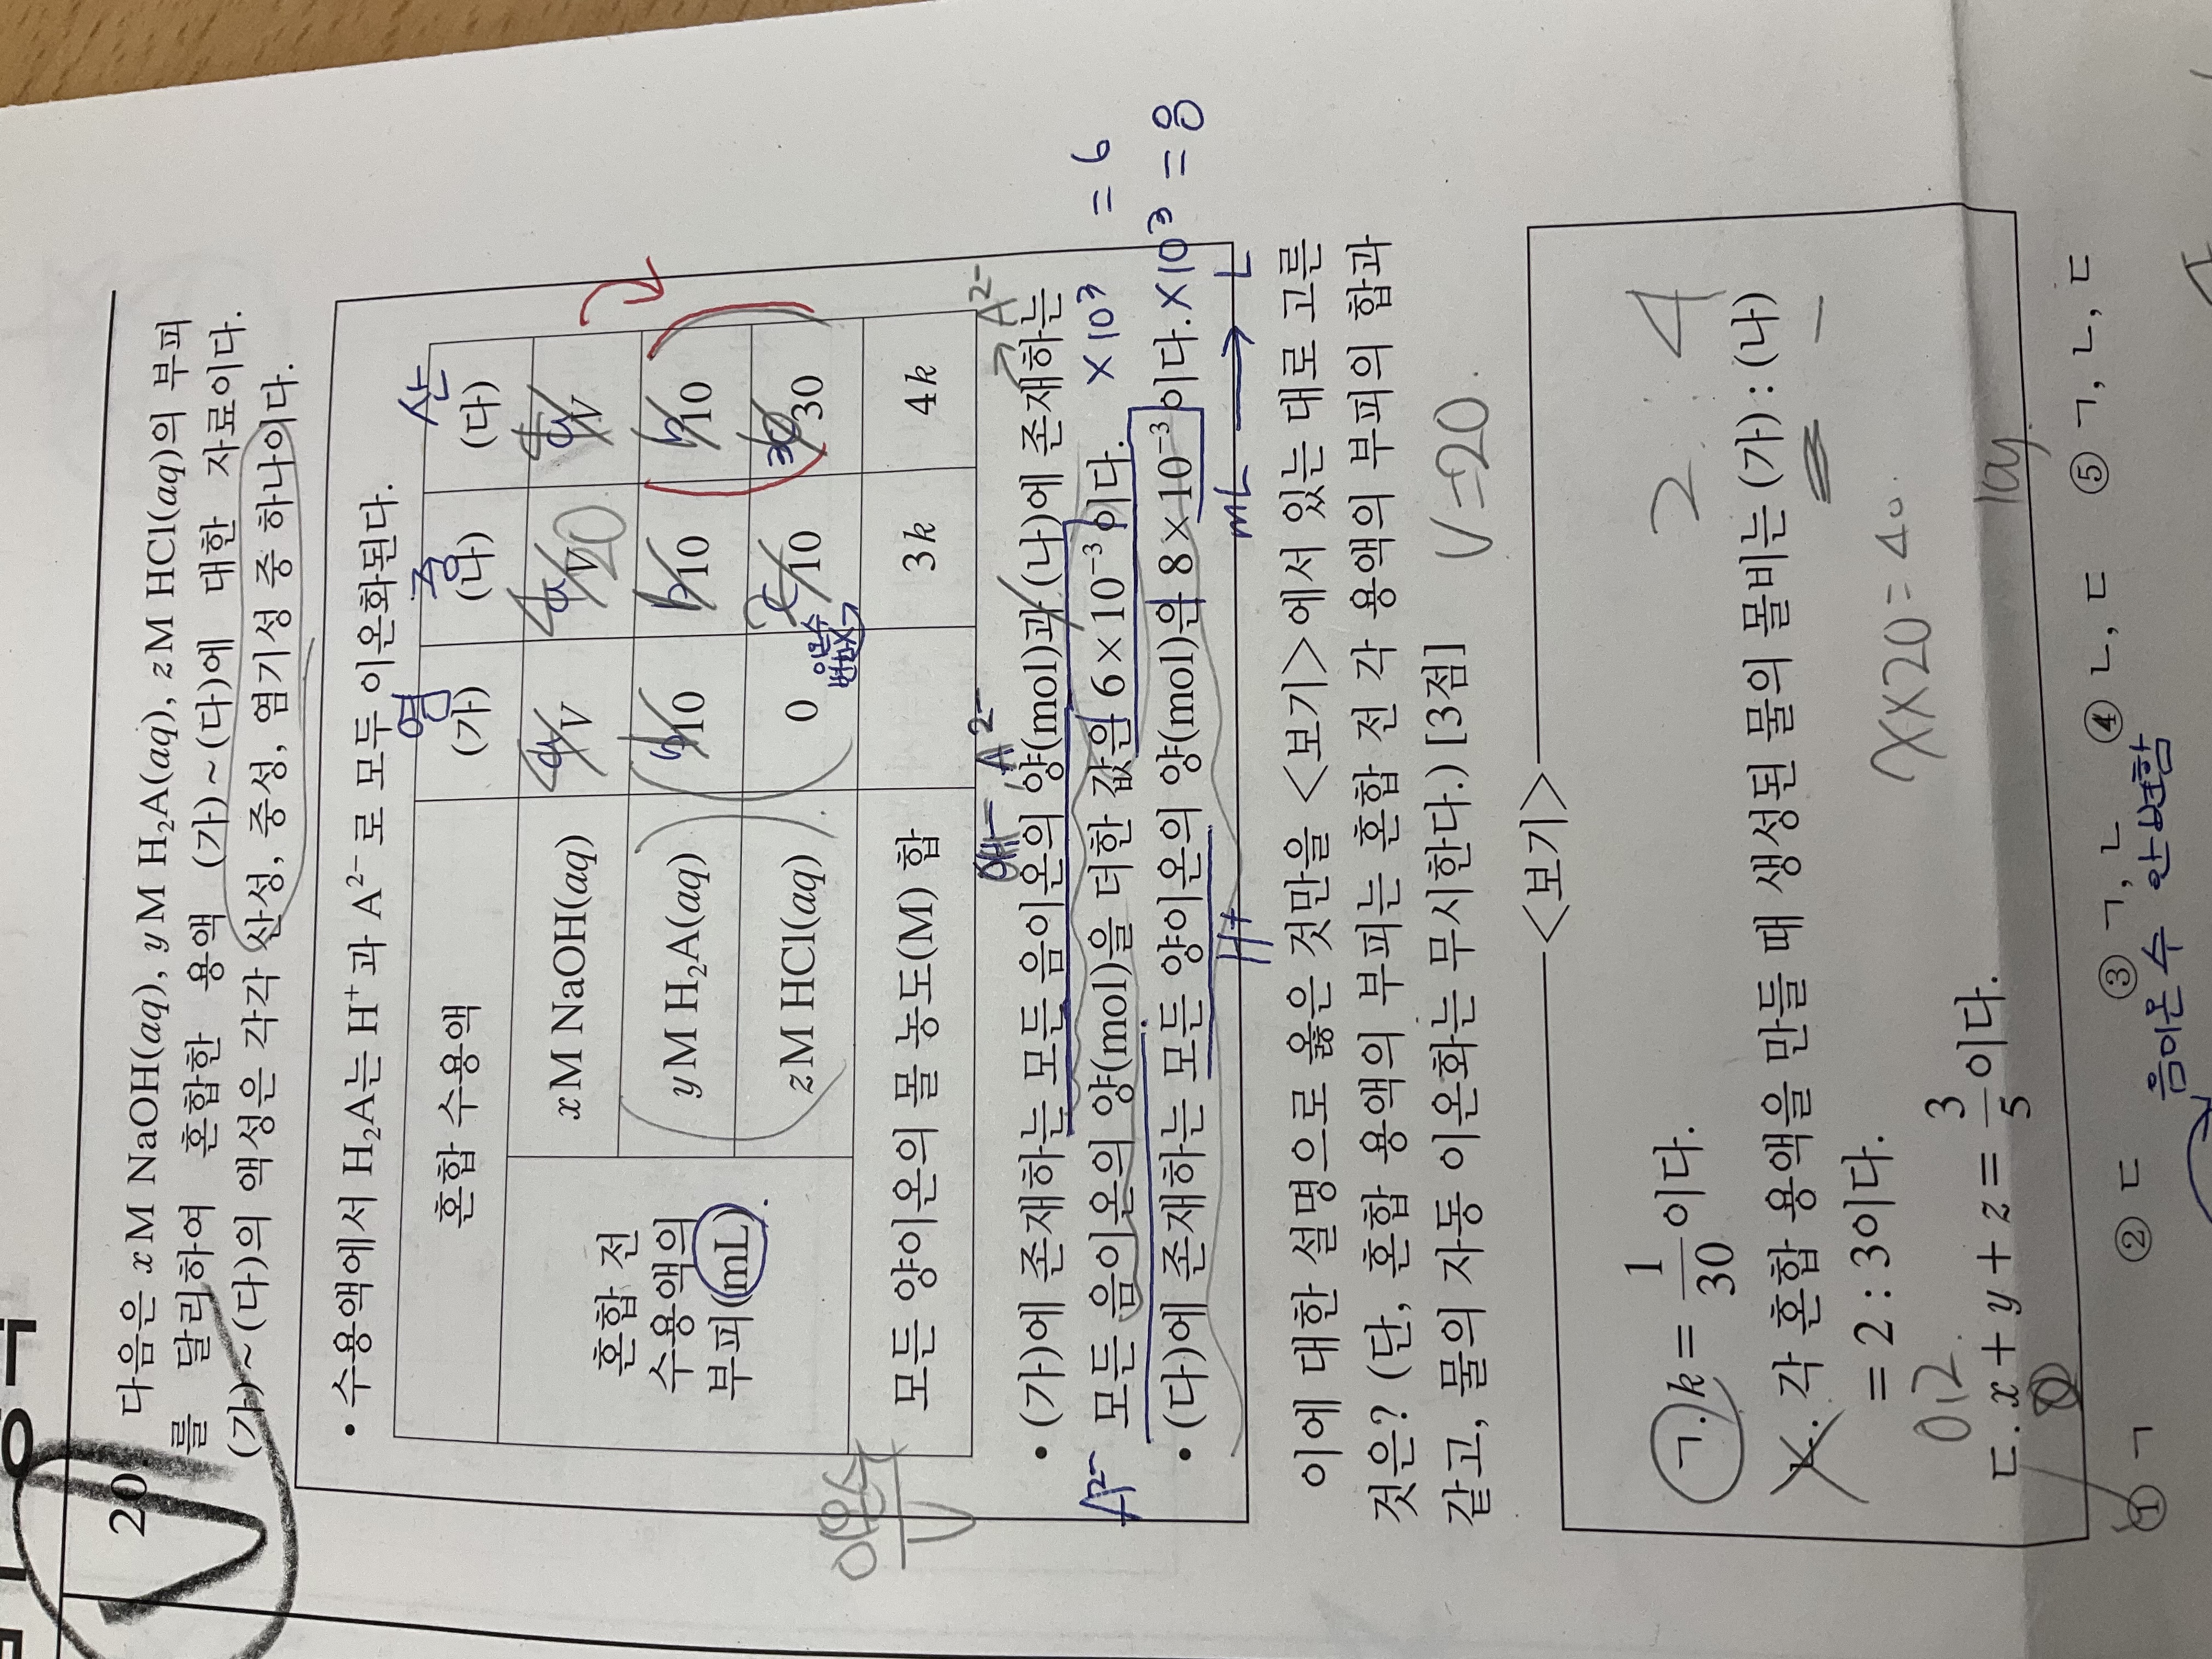 20. 다음은 x M NaOH(aq), y M H₂A(aq), z M HCl(aq)의 부피
를 달리하여 혼합한 용액 (가)~(다)에 대한 자료이다.
(가)~(다)의 액성은 각각 산성, 중성, 염기성 중 하나이다.
• 수용액에서 H₂A는 H⁺과 A²⁻로 모두 이온화된다.
염 중 산
혼합 수용액 (가) (나) (다)
혼합 전 수용액의 부피(mL)
x M NaOH(aq) V V V
20
y M H₂A(aq) 10 10 10
z M HCl(aq) 0 10 30
모든 양이온의 몰 농도(M) 합 3k 4k
A²⁻ A²⁻
• (가)에 존재하는 모든 음이온의 양(mol)과 (나)에 존재하는
모든 음이온의 양(mol)을 더한 값은 6×10⁻³이다. ×10³ = 6
A²⁻
• (다)에 존재하는 모든 양이온의 양(mol)은 8×10⁻³이다. ×10³ = 8
H⁺ mL → L
이에 대한 설명으로 옳은 것만을 <보기>에서 있는 대로 고른
것은? (단, 혼합 용액의 부피는 혼합 전 각 용액의 부피의 합과
같고, 물의 자동 이온화는 무시한다.) [3점]
V=20
<보기>
ㄱ. k = 1/30이다.
2 : 4
ㄴ. 각 혼합 용액을 만들 때 생성된 물의 몰비는 (가) : (나)
= 2 : 3이다.
x×20=40
ㄷ. x + y + z = 3/5이다.
① ㄱ ② ㄷ ③ ㄱ, ㄴ ④ ㄴ, ㄷ ⑤ ㄱ, ㄴ, ㄷ
음이온 수 안변함